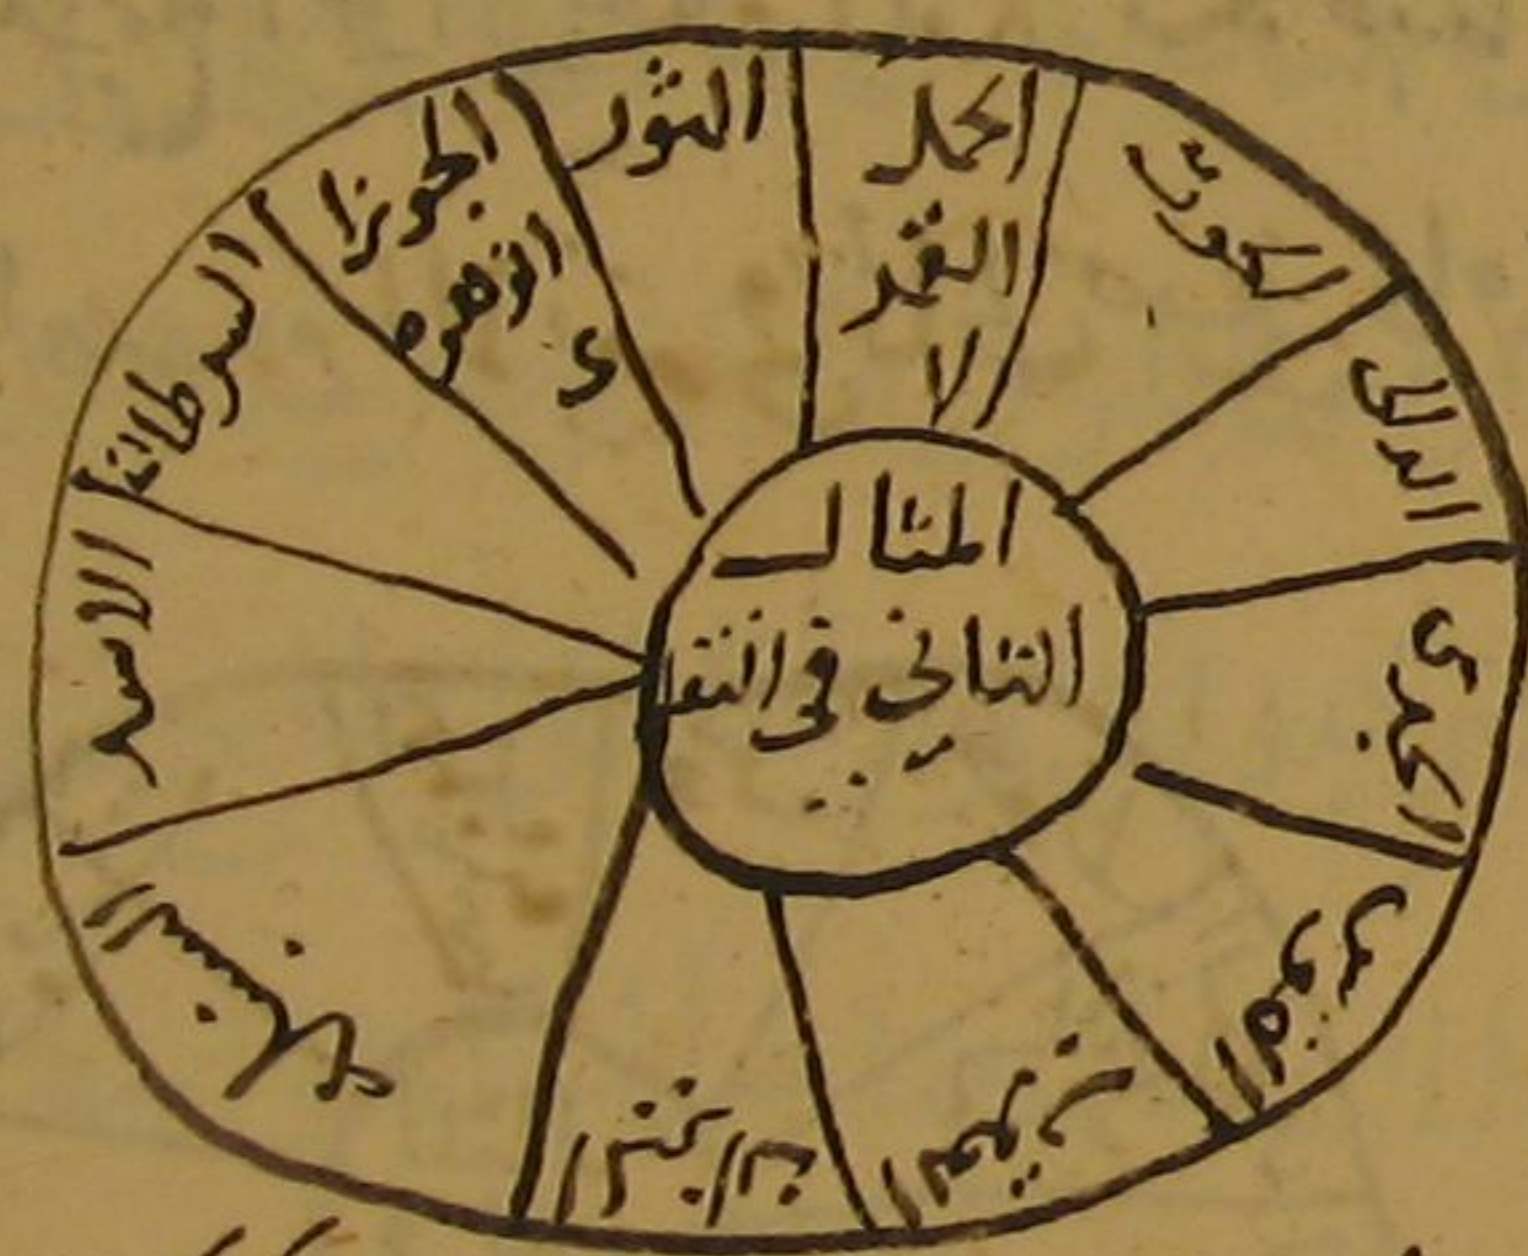 المثال
الثاني في النقل
الحمل
القمر
لا
الثور
الجوزا
الزهره
ى
السرطان
الاسد
السنبله
الميزان
العقرب
القوس
الجدى
الدلى
الحوت